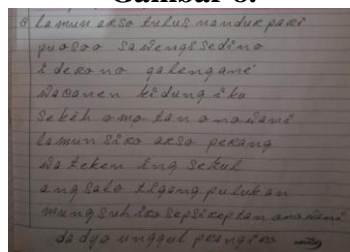 Gambar 8.
8 lamun arso tulus nandur pari
puosoo sawengi sedino
iderono galengané
wacanen kidung iku
sekèh omo tan ono wani
lamun siro arso perang
wateken ing sekul
ang salo tigang pulukan
mungsuh iro sep sirep tan ono wani
dadyo unggul prangiro